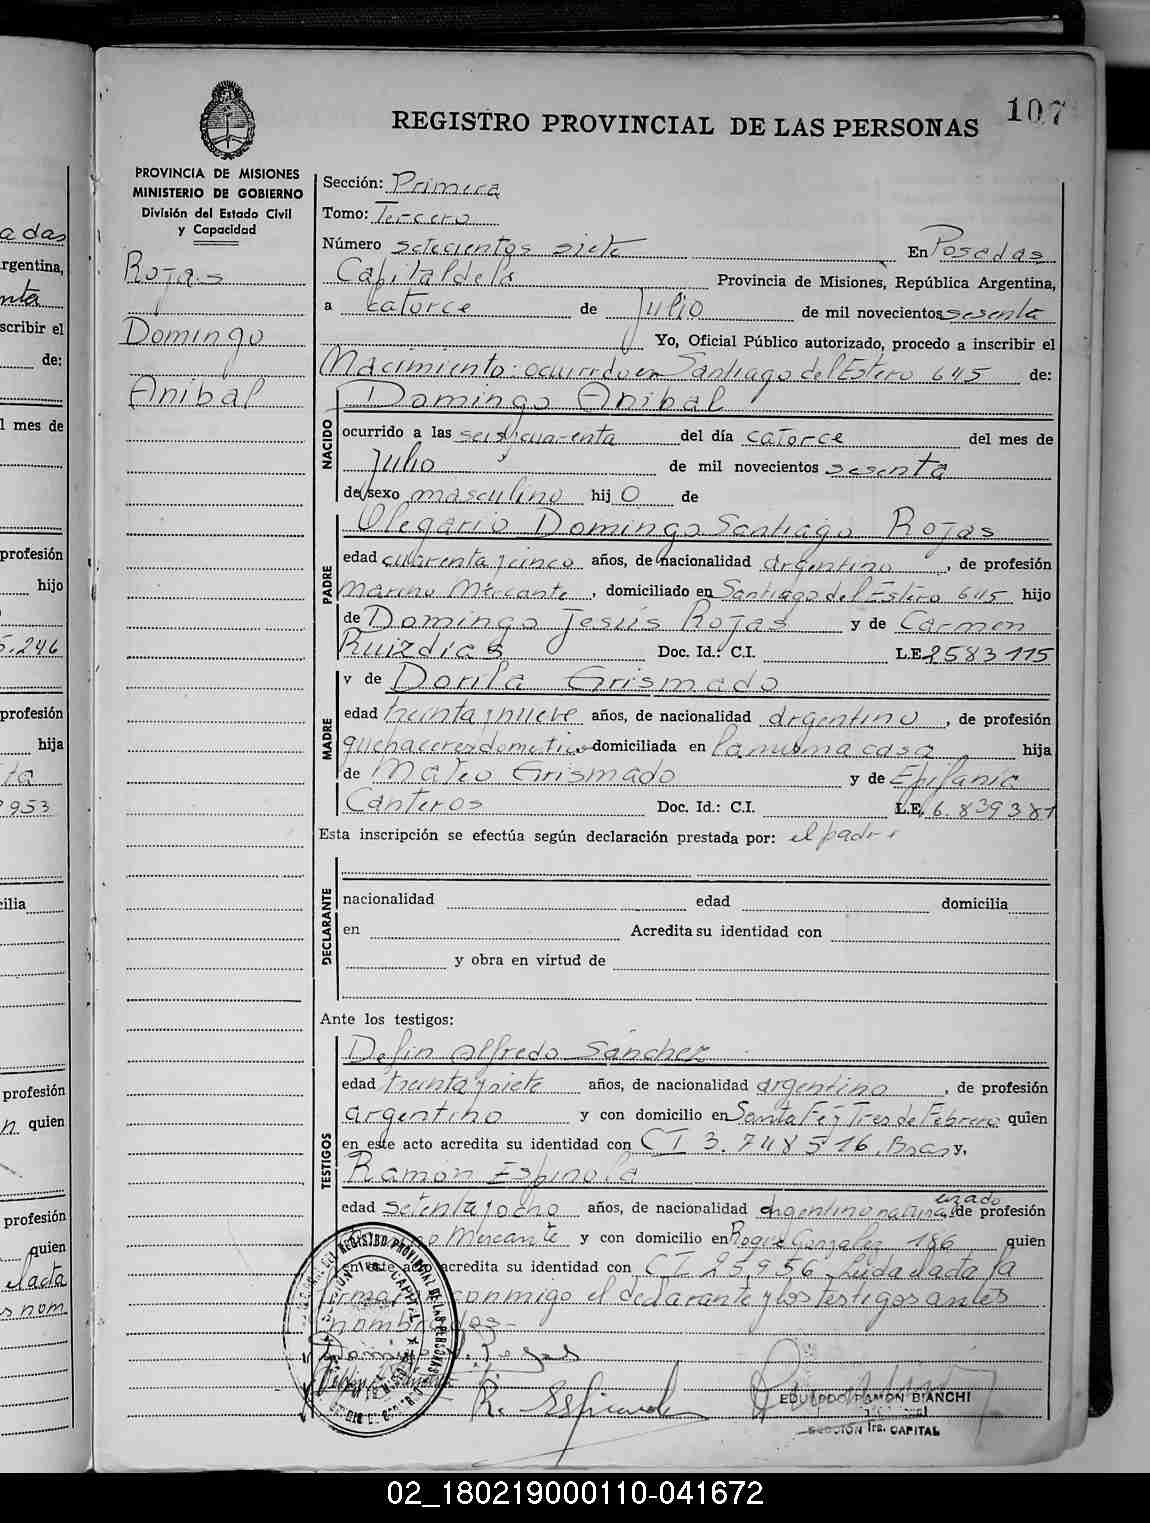 107
REGISTRO PROVINCIAL DE LAS PERSONAS
PROVINCIA DE MISIONES
MINISTERIO DE GOBIERNO
División del Estado Civil
y Capacidad
Rojas
Domingo
Anibal
Sección: Primera
Tomo: Tercero
Número setecientos siete En Posadas
Capital de la Provincia de Misiones, República Argentina,
a catorce de Julio de mil novecientos sesenta
Yo, Oficial Público autorizado, procedo a inscribir el
Nacimiento: ocurrido en Santiago del Estero 645 de:
NACIDO
Domingo Anibal
ocurrido a las seis y cuarenta del día catorce del mes de
Julio de mil novecientos sesenta
de sexo masculino hij o de
PADRE
Olegario Domingo Santiago Rojas
edad cuarenta y cinco años, de nacionalidad argentino, de profesión
marino Mercante, domiciliado en Santiago del Estero 645 hijo
de Domingo Jesús Rojas y de Carmen
Ruizdias Doc. Id.: C.I. L.E. 2583115
MADRE
y de Dorila Grismado
edad treinta y nueve años, de nacionalidad argentino, de profesión
quehaceres domesticos domiciliada en la misma casa hija
de Mateo Grismado y de Epifania
Canteros Doc. Id.: C.I. L.E. 6.839381
Esta inscripción se efectúa según declaración prestada por: el padre
DECLARANTE
nacionalidad edad domicilia
en Acredita su identidad con
y obra en virtud de
Ante los testigos:
TESTIGOS
Delfin Alfredo Sánchez
edad treinta y siete años, de nacionalidad argentino, de profesión
argentino y con domicilio en Santa Fé y Tres de Febrero quien
en este acto acredita su identidad con CI 3.748516. y,
Ramón Espinola
edad setenta y ocho años, de nacionalidad argentino naturalizado de profesión
Mercante y con domicilio en Roque Gonzalez 186 quien
en este acto acredita su identidad con CI 25956 Leida el acta la
firman conmigo el declarante y los testigos antes
nombrados-
R. Espinola
EDUARDO RAMON BIANCHI
SECCIÓN 1ra. CAPITAL
adas
rgentina,
nta
scribir el
de:
l mes de
profesión
hijo
5.246
profesión
hija
ta
953
cilia
profesión
n quien
profesión
quien
el acta
s nom
02_180219000110-041672